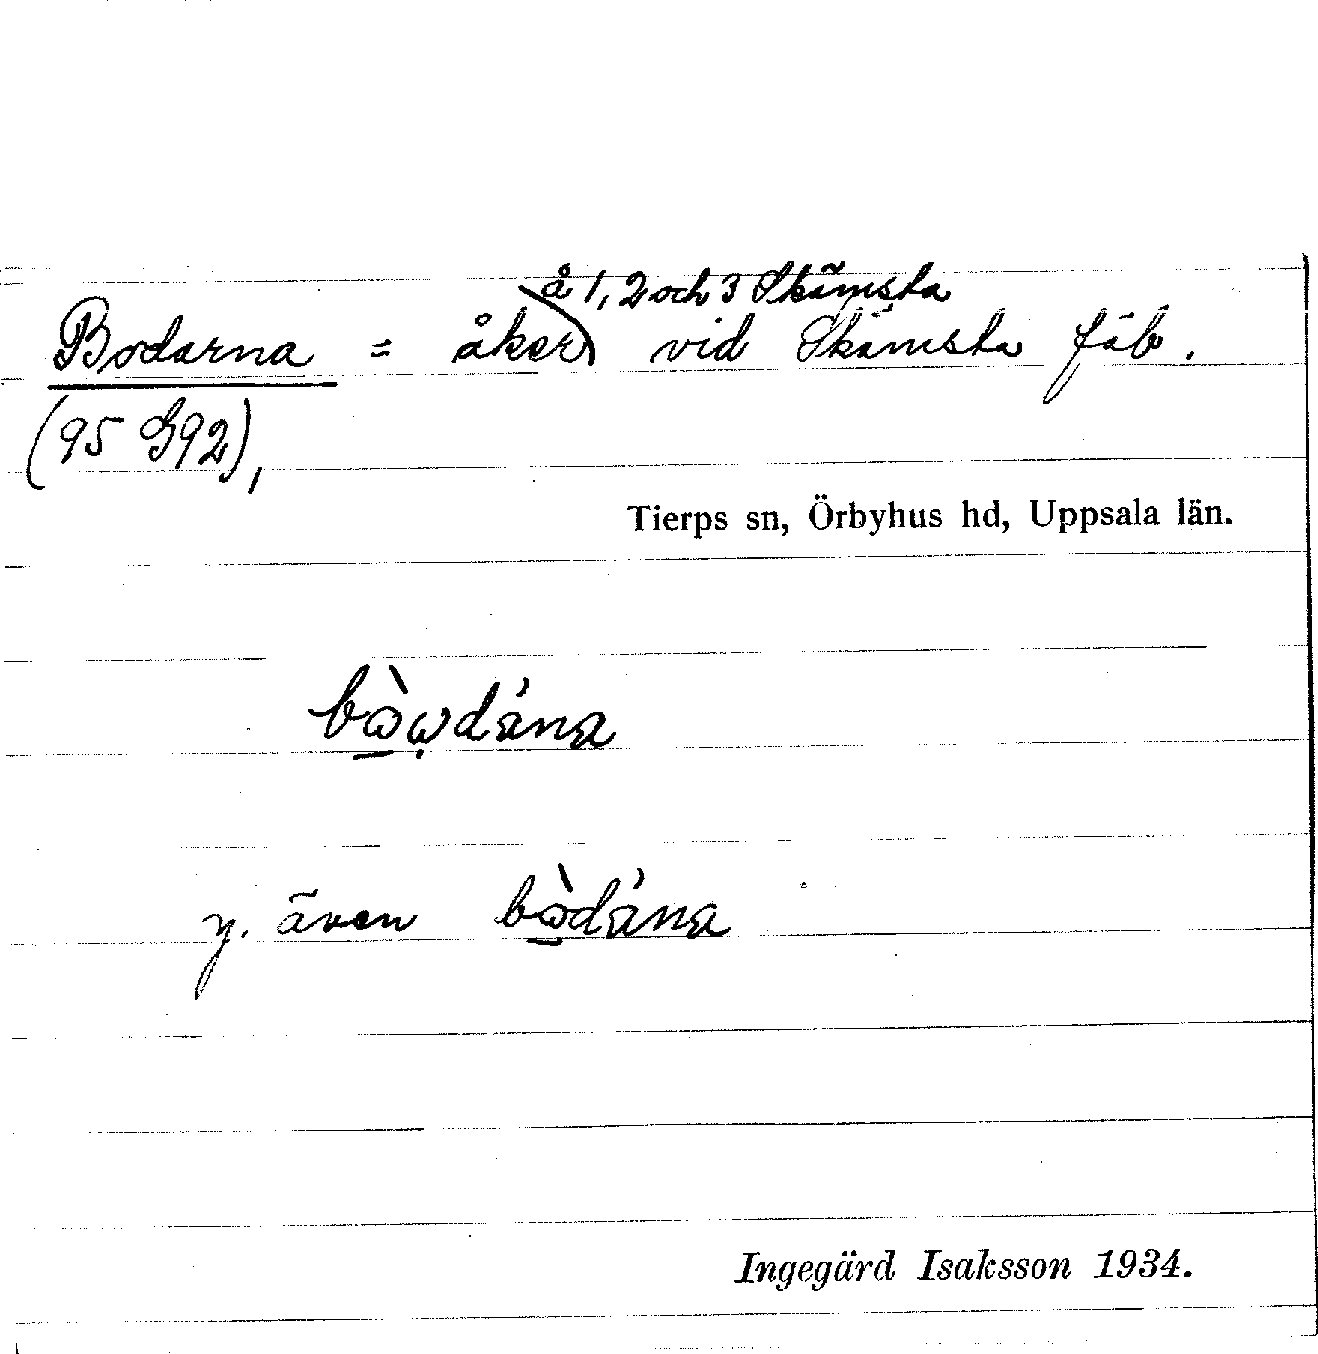 å 1, 2 och 3 Skämsta
Bodarna = åker vid Skämsta fäb.
(95 G92),
Tierps sn, Örbyhus hd, Uppsala län.
bὼω̣dána
y. även bὼdána
Ingegärd Isaksson 1934.